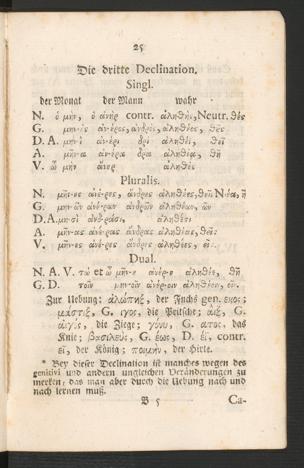 25
Die dritte Declination.
Singl.
der Monat der Mann wahr
N. ὁ μήν, ὁ ἀνήρ contr. ἀληθής, Neutr. θές
G. μην-ός ἀν-έρος, ἀνδρός, ἀληθέος, θοῦς
D. A. μην-ί ἀν-έρι δρί ἀληθέϊ, θεῖ
A. μῆν-α ἀν-έρα δρα ἀληθέα, θῆ
V. ὦ μήν ἄνερ ἀληθές
Pluralis.
N. μῆν-ες ἀνέ-ρες, ἄνδρες ἀληθέες, θεῖς N-έα, ῆ
G. μην-ῶν ἀνέ-ρων ἀνδρῶν ἀληθέων, ῶν
D. A. μη-σὶ ἀνδράσι, ἀληθέσι
A. μῆν-ας ἀνέ-ρας ἄνδρας ἀληθέας, θεῖς
V. μῆν-ες ἀνέ-ρες ἄνδρες ἀληθέες, εῖς.
Dual.
N. A. V. τὼ et ὦ μῆν-ε ἀνέρ-ε ἀληθέε, θῆ
G. D. τοῖν μην-οῖν ἀνέρ-οιν ἀληθέοιν, οῖν.
Zur Uebung: ἀλώπηξ, der Fuchs gen. εκος;
μάστιξ, G. ιγος, die Peitsche; αἴξ, G.
αἰγός, die Ziege; γόνυ, G. ατος, das
Knie; βασιλεύς, G. έως, D. έϊ, contr.
εῖ, der König; ποιμήν, der Hirte.
* Bey dieser Declination ist manches wegen des
genitivi und andern ungleichen Veränderungen zu
merken, das man aber durch die Uebung nach und
nach lernen muß.
B 5 Ca-